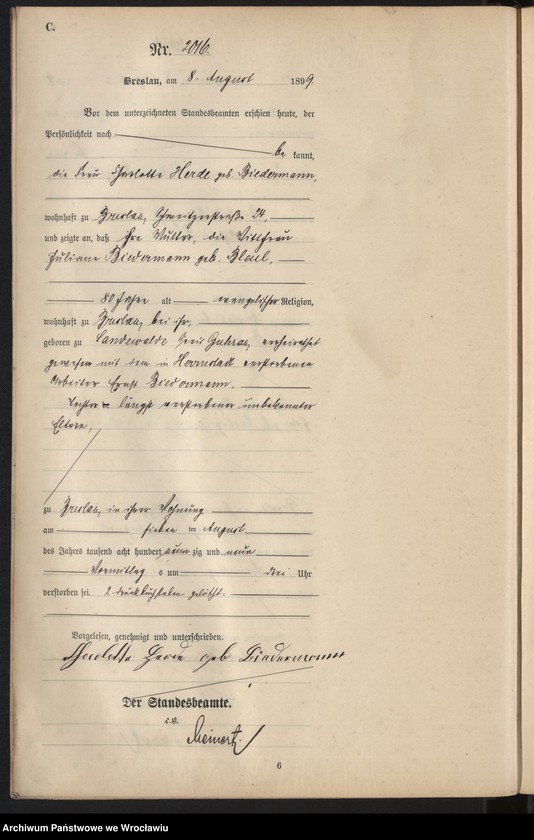 C.
Nr. 2016.
Breslau, am 8. August 1899
Vor dem unterzeichneten Standesbeamten erschien heute, der
Persönlichkeit nach
be kannt,
die Frau Charlotte Herde geb. Biedermann,
wohnhaft zu Breslau, Schweitzerstraße 24,
und zeigte an, daß ihre Mutter, die Wittfrau
Juliane Biedermann geb. Bleul,
80 Jahre alt evangelischer Religion,
wohnhaft zu Breslau, bei ihr,
geboren zu Sandewalde Kreis Guhrau, verheirathet
gewesen mit dem in Herrnstadt verstorbenen
Arbeiter Ernst Biedermann.
Tochter längst verstorbener unbekannter
Eltern,
zu Breslau, in ihrer Wohnung
am sieben ten August
des Jahres tausend acht hundert neun zig und neun
Vormittag s um drei Uhr
verstorben sei. 2 Druckbuchstaben gelöscht.
Vorgelesen, genehmigt und unterschrieben.
Charlotte Herde geb Biedermann
Der Standesbeamte.
i.V.
Meinert
6
Archiwum Państwowe we Wrocławiu